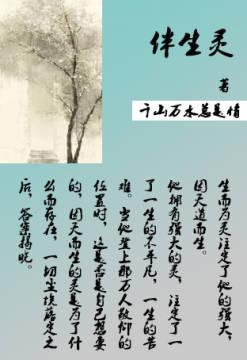 伴生灵
著
千山万水总是情
生而为灵注定了他的强大，
因天道而生。
他拥有强大的灵，注定了一
了一生的不平凡，一生的苦
难。当他登上那万人敬仰的
位置时，这是否是自己想要
的，因天而生的灵是为了什
么而存在，一切尘埃落定之
后，答案揭晓。